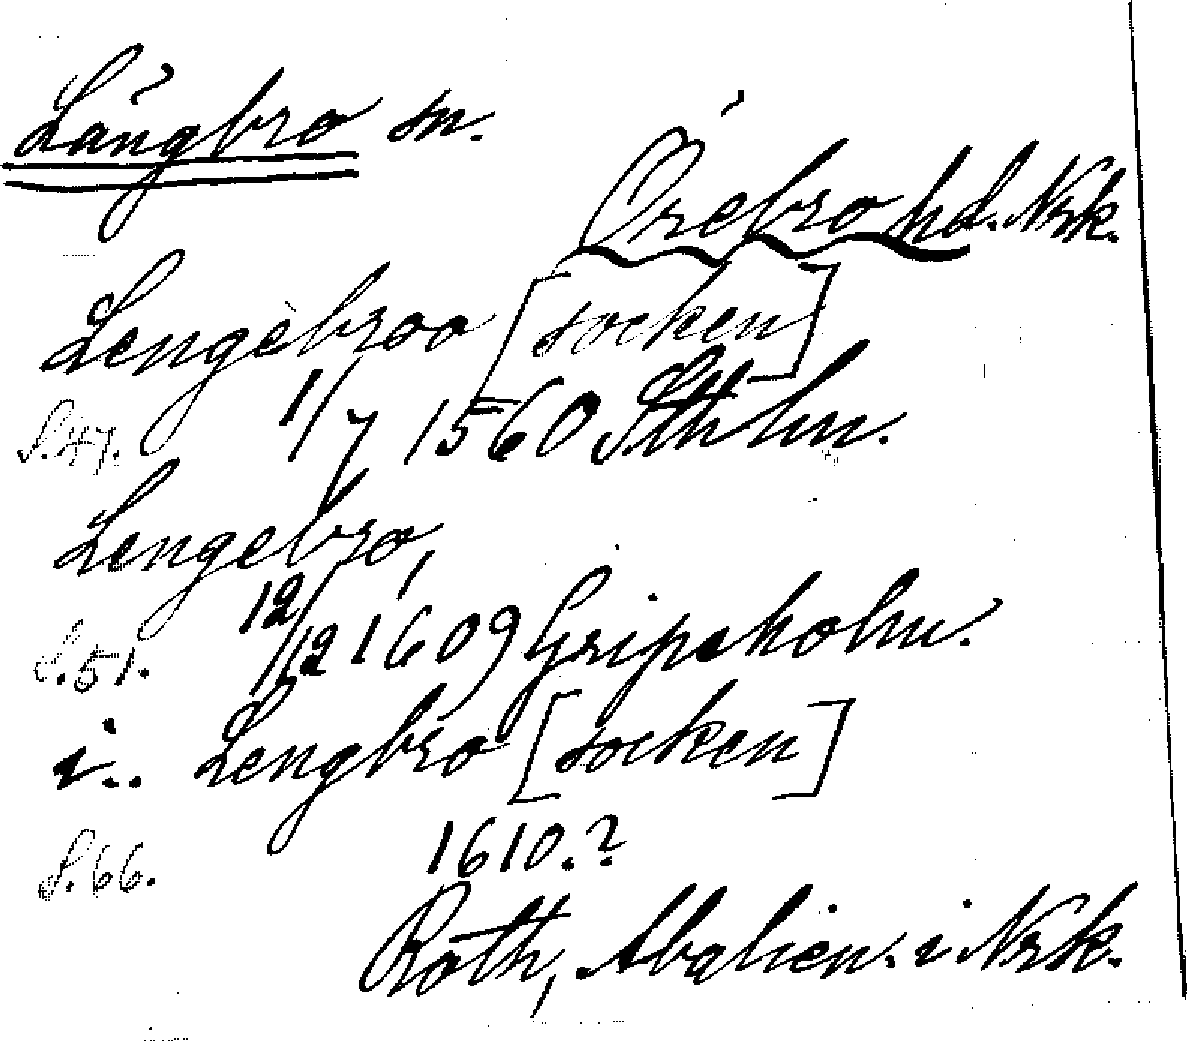 Långbro sn.
Örebro hd. Nrk.
Lengebroo [socken]
S. 47. 1/7 1560 Sthlm.
Lengebro,
S. 51. 12/12 1609 Gripsholm.
i.. Lengbro [socken]
S. 66. 1610.?
Roth, i Nrk.